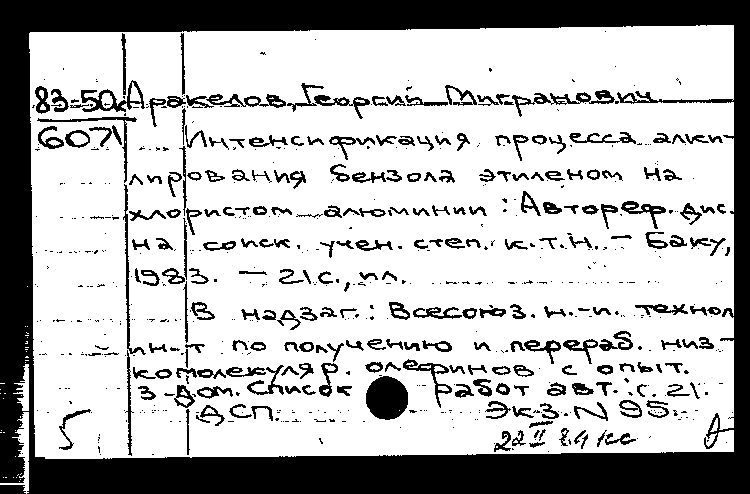 83-50к Аракелов, Георгий Мигранович
6071 Интенсификация процесса алки-
лирования бензола этиленом на
хлористом алюминии : Автореф. дис.
на соиск. учен. степ. к.т.н. — Баку,
1983. — 21 с., ил.
В надзаг.: Всесоюз. н.-и. технол
ин-т по получению и перераб. низ-
комолекуляр. олефинов с опыт.
з-дом. Список работ авт.: с. 21.
5 ДСП. Экз. N 95.
22 II 84 кс